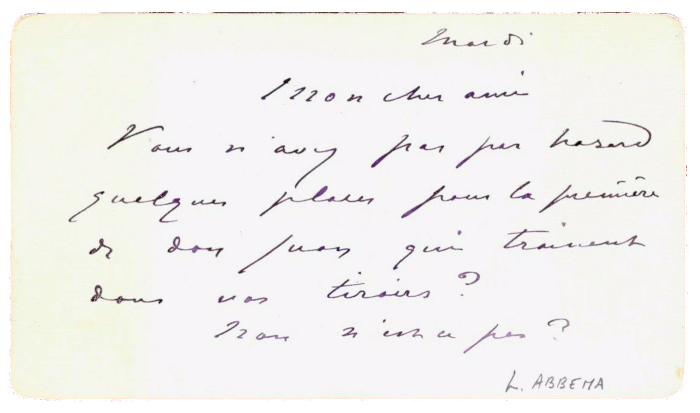 Mardi
Mon cher ami
Vous n'avez pas par hazard
quelques places pour la première
de don Juan qui trainent
dans vos tiroirs ?
Non n'est ce pas ?
L. ABBEMA